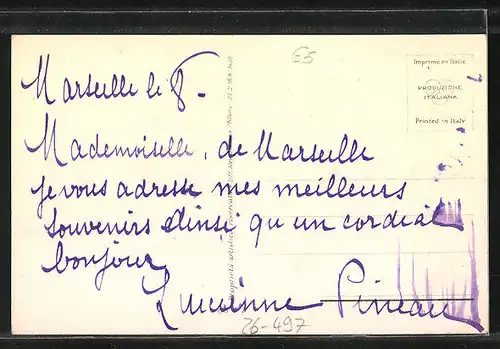 E5
Imprimé en Italie
PRODUZIONE
ITALIANA
Printed in Italy
Marseille le 8.
Mademoiselle, de Marseille
je vous adresse mes meilleurs
souvenirs ainsi qu'un cordial
bonjour
Lucienne Pineau
26-497